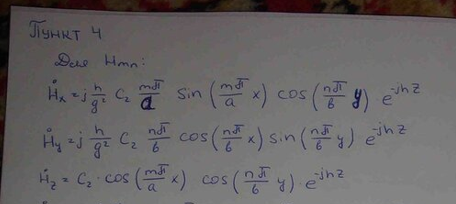 Пункт 4
Для Hmn:
Ḣx = j h/g² C₂ mπ/a sin (mπ/a x) cos (nπ/b y) e^-jhz
Ḣy = j h/g² C₂ nπ/b cos (nπ/b x) sin (nπ/b y) e^-jhz
Ḣz = C₂ · cos (mπ/a x) cos (nπ/b y) · e^-jhz